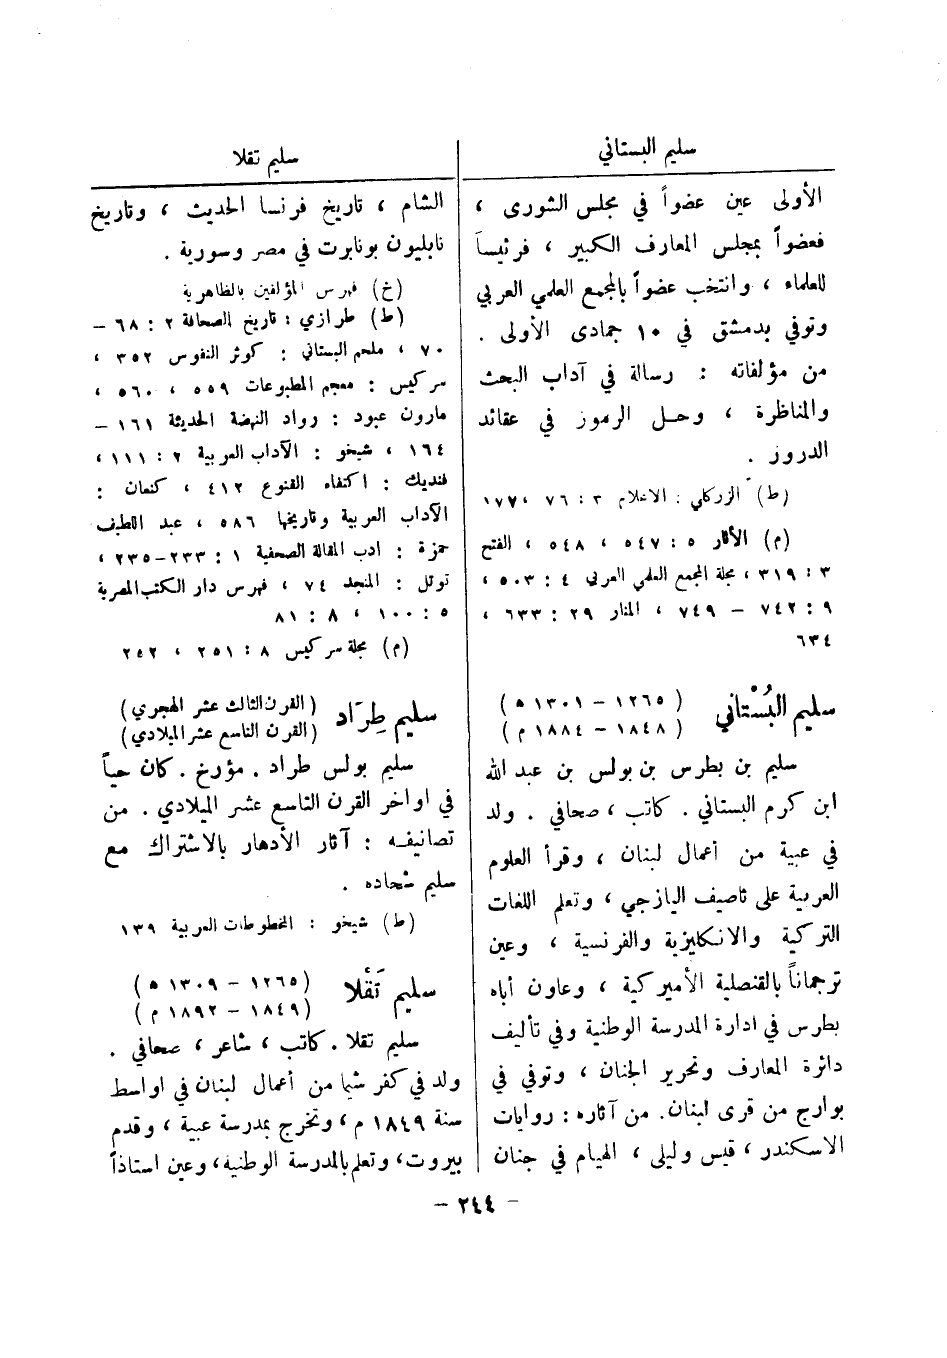 سليم البستاني
الأولى عين عضواً في مجلس الشورى ،
فعضواً بمجلس المعارف الكبير ، فرئيساً
للعلماء ، وانتخب عضواً بالمجمع العلمي العربي
وتوفي بدمشق في ١٠ جمادى الأولى .
من مؤلفاته : رسالة في آداب البحث
والمناظرة ، وحل الرموز في عقائد
الدروز .
(ط) الزركلي : الاعلام ٣ : ٧٦ ، ١٧٧
(م) الآثار ٥ : ٥٤٧ ، ٥٤٨ ، الفتح
٣ : ٣١٩ ، مجلة المجمع العلمي العربي ٤ : ٥٠٣ ،
٩ : ٧٤٢ – ٧٤٩ ، المنار ٢٩ : ٦٣٣ ،
٦٣٤
سليم البُسْتاني (١٢٦٥ – ١٣٠١ ه)
(١٨٤٨ – ١٨٨٤ م)
سليم بن بطرس بن بولس بن عبد الله
ابن كرم البستاني . كاتب ، صحافي . ولد
في عبية من أعمال لبنان ، وقرأ العلوم
العربية على ناصيف اليازجي ، وتعلم اللغات
التركية والانكليزية والفرنسية ، وعين
ترجماناً بالقنصلية الأميركية ، وعاون أباه
بطرس في ادارة المدرسة الوطنية وفي تأليف
دائرة المعارف وتحرير الجنان ، وتوفي في
بوارج من قرى لبنان. من آثاره : روايات
الاسكندر ، قيس وليلى ، الهيام في جنان
سليم تقلا
الشام ، تاريخ فرنسا الحديث ، وتاريخ
نابليون بونابرت في مصر وسورية .
(خ) فهرس المؤلفين بالظاهرية
(ط) طرازي : تاريخ الصحافة ٢ : ٦٨ –
٧٠ ، ملحم البستاني : كوثر النفوس ٣٥٢ ،
سركيس : معجم المطبوعات ٥٥٩ ، ٥٦٠ ،
مارون عبود : رواد النهضة الحديثة ١٦١ –
١٦٤ ، شيخو : الآداب العربية ٢ : ١١١ ،
فنديك : اكتفاء القنوع ٤١٢ ، كنعان :
الآداب العربية وتاريخها ٥٨٦ ، عبد اللطيف
حمزة : ادب المقالة الصحفية ١ : ٢٣٣–٢٣٥ ،
توتل : المنجد ٧٤ ، فهرس دار الكتب المصرية
٥ : ١٠٠ ، ٨ : ٨١
(م) مجلة سركيس ٨ : ٢٥١ ، ٢٤٢
سليم طِرَاد (القرن الثالث عشر الهجري)
(القرن التاسع عشر الميلادي)
سليم بولس طراد . مؤرخ . كان حياً
في اواخر القرن التاسع عشر الميلادي . من
تصانيفه : آثار الأدهار بالاشتراك مع
سليم شحاده .
(ط) شيخو : المخطوطات العربية ١٣٩
سليم تَقْلا (١٢٦٥ – ١٣٠٩ ه)
(١٨٤٩ – ١٨٩٢ م)
سليم تقلا . كاتب ، شاعر ، صحافي .
ولد في كفر شيا من أعمال لبنان في اواسط
سنة ١٨٤٩ م ، وتخرج بمدرسة عبية ، وقدم
بيروت ، وتعلم بالمدرسة الوطنية ، وعين استاذاً
– ٢٤٤ –